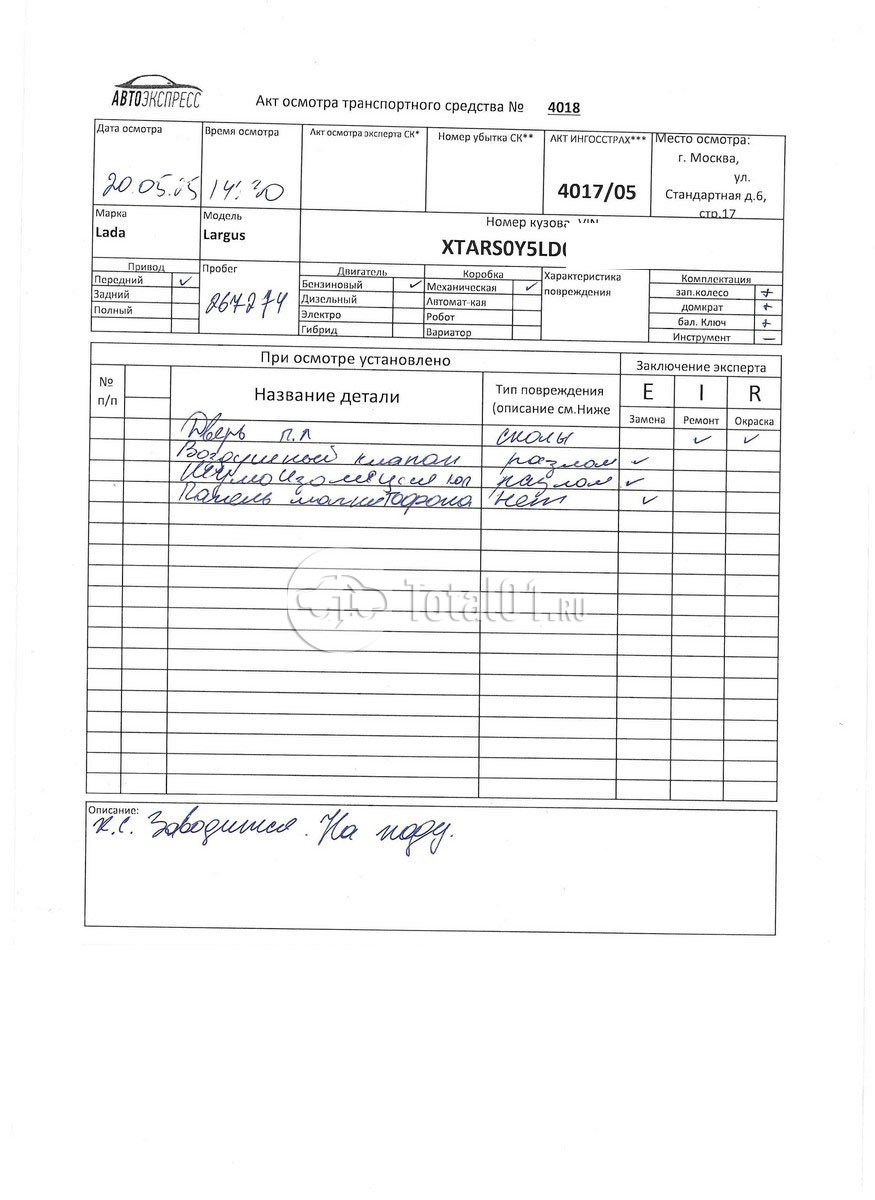 АВТОЭКСПРЕСС
Акт осмотра транспортного средства № 4018
Дата осмотра
20.05.
Время осмотра
14:30
Акт осмотра эксперта СК*
Номер убытка СК**
АКТ ИНГОССТРАХ***
4017/05
Место осмотра:
г. Москва,
ул.
Стандартная д.6,
стр.17
Марка
Lada
Модель
Largus
Номер кузова VIN
XTARS0Y5LD
Привод
Передний ✓
Задний
Полный
Пробег
267274
Двигатель
Бензиновый ✓
Дизельный
Электро
Гибрид
Коробка
Механическая ✓
Автомат-кая
Робот
Вариатор
Характеристика
повреждения
Комплектация
зап.колесо +
домкрат +
бал. Ключ +
Инструмент —
При осмотре установлено
Заключение эксперта
№
п/п
Название детали
Тип повреждения
(описание см.Ниже
E I R
Замена Ремонт Окраска
Дверь п.л сколы ✓ ✓
Воздушный клапан разлом ✓
Шумоизоляция разлом ✓
Панель магнитофона нет ✓
Total01.RU
Описание:
к.с. Заводится. На ходу.